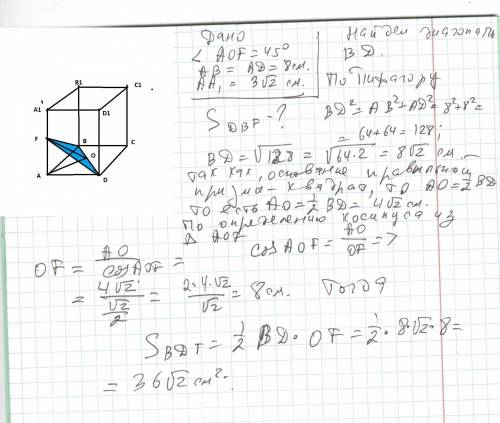 B1
C1
A1
D1
F
B
C
O
A
D
Дано
∠ AOF = 45°
AB = AD = 8см.
AA₁ = 3√2 см.
S DBF - ?
Найдем диагональ
BD.
По Пифагору
BD² = AB² + AD² = 8² + 8² =
= 64 + 64 = 128;
BD = √128 = √64·2 = 8√2 см.
Так как, основание правильной
призмы - квадрат, то AO = ½ BD
то есть AO = ½ BD = 4√2 см.
По определению косинуса из
△ AOF
cos AOF = AO/OF =>
OF = AO/cos AOF =
= 4√2/(√2/2) = 2·4·√2/√2 = 8 см. Тогда
S BDF = ½ BD · OF = ½ · 8·√2·8 =
= 36√2 см².